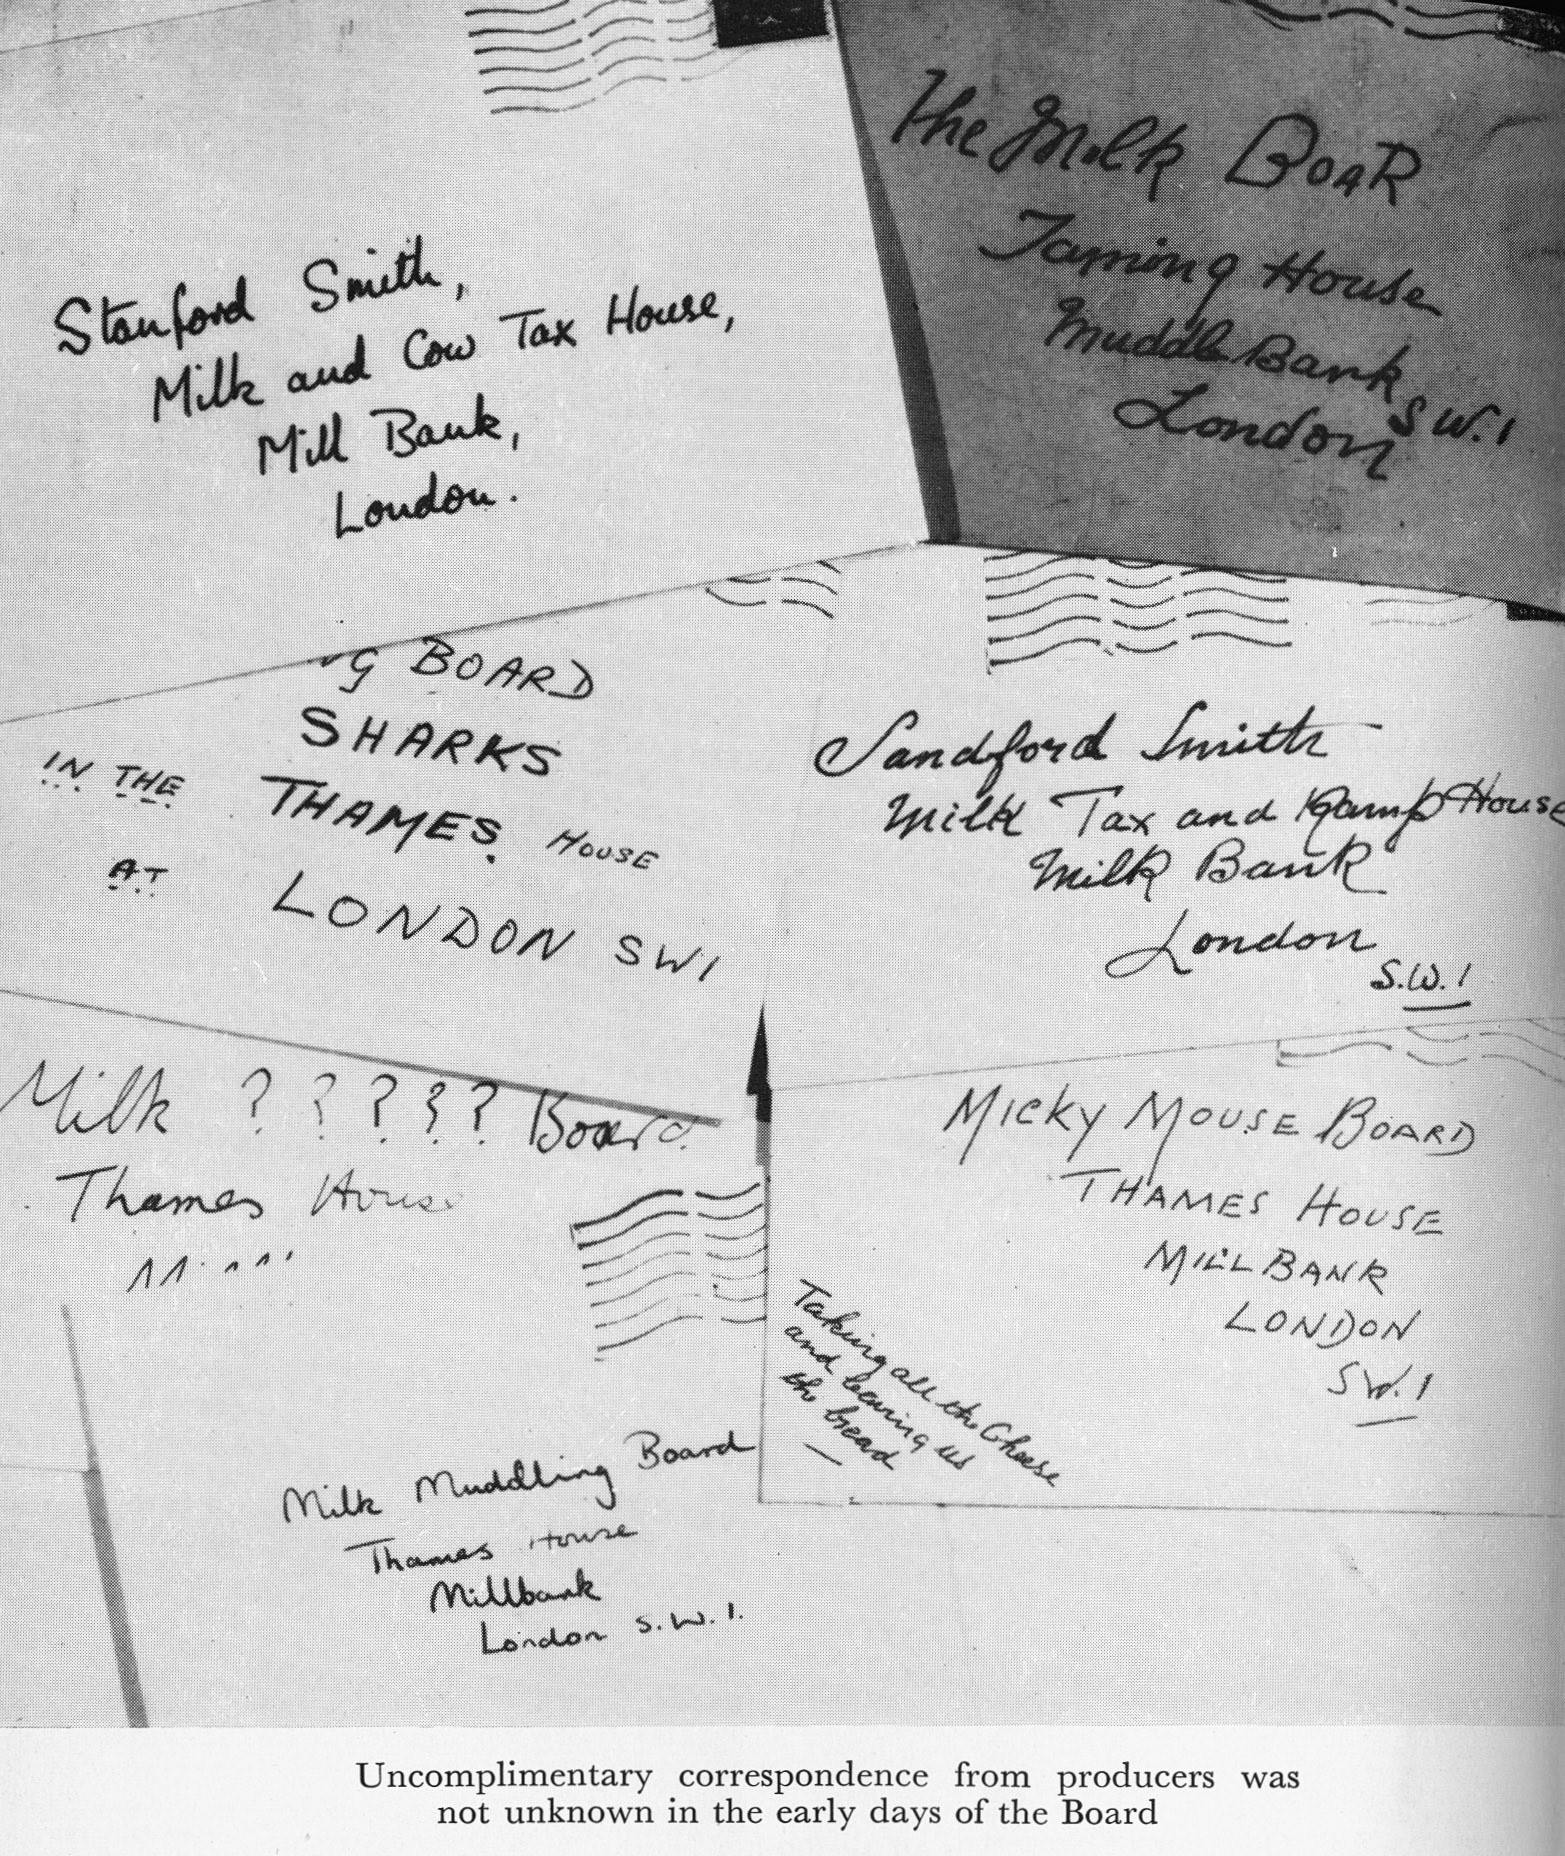 Stanford Smith,
Milk and Cow Tax House,
Mill Bank,
London.
The Milk BoaR
Taming House
Muddle Bank
London S W. 1
G BOARD
SHARKS
IN THE THAMES HOUSE
AT LONDON SW1
Sandford Smith
Milk Tax and Ramp House
Milk Bank
London
S.W. 1
Milk ? ? ? ? ? Board.
Thames House
MICKY MOUSE BOARD
THAMES HOUSE
MILLBANK
LONDON
SW. 1
Taking all the Cheese
and leaving us
the bread
Milk Muddling Board
Thames House
Millbank
London S. W. 1.
Uncomplimentary correspondence from producers was
not unknown in the early days of the Board